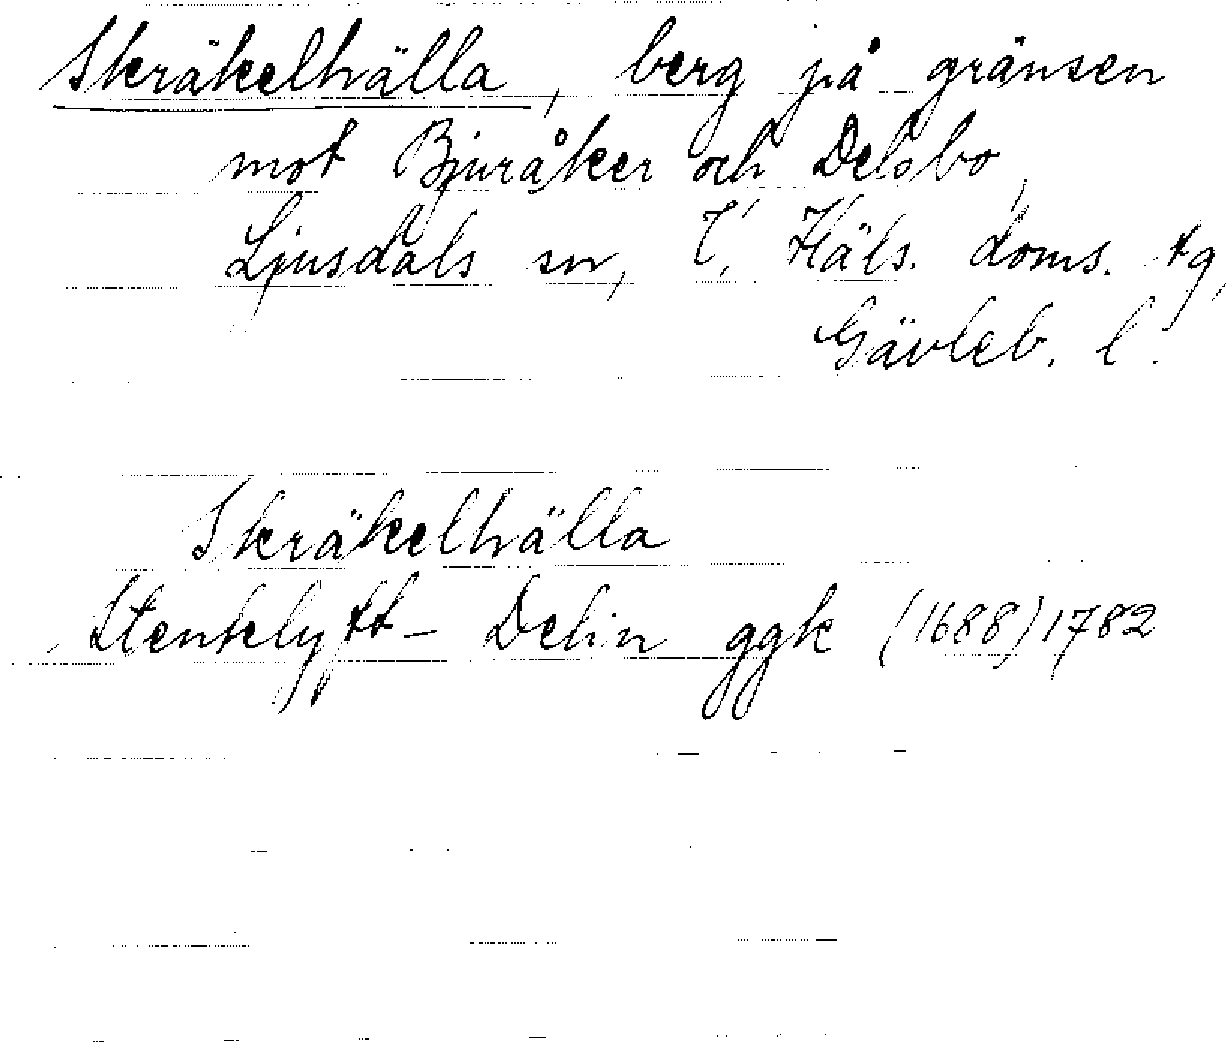 Skräkelhälla, berg på gränsen
mot Bjuråker och Delsbo,
Ljusdals sn, Häls. doms. tg,
Gävleb. l.
Skräkelhälla
Stenklyft - Delin ggk (1688) 1782